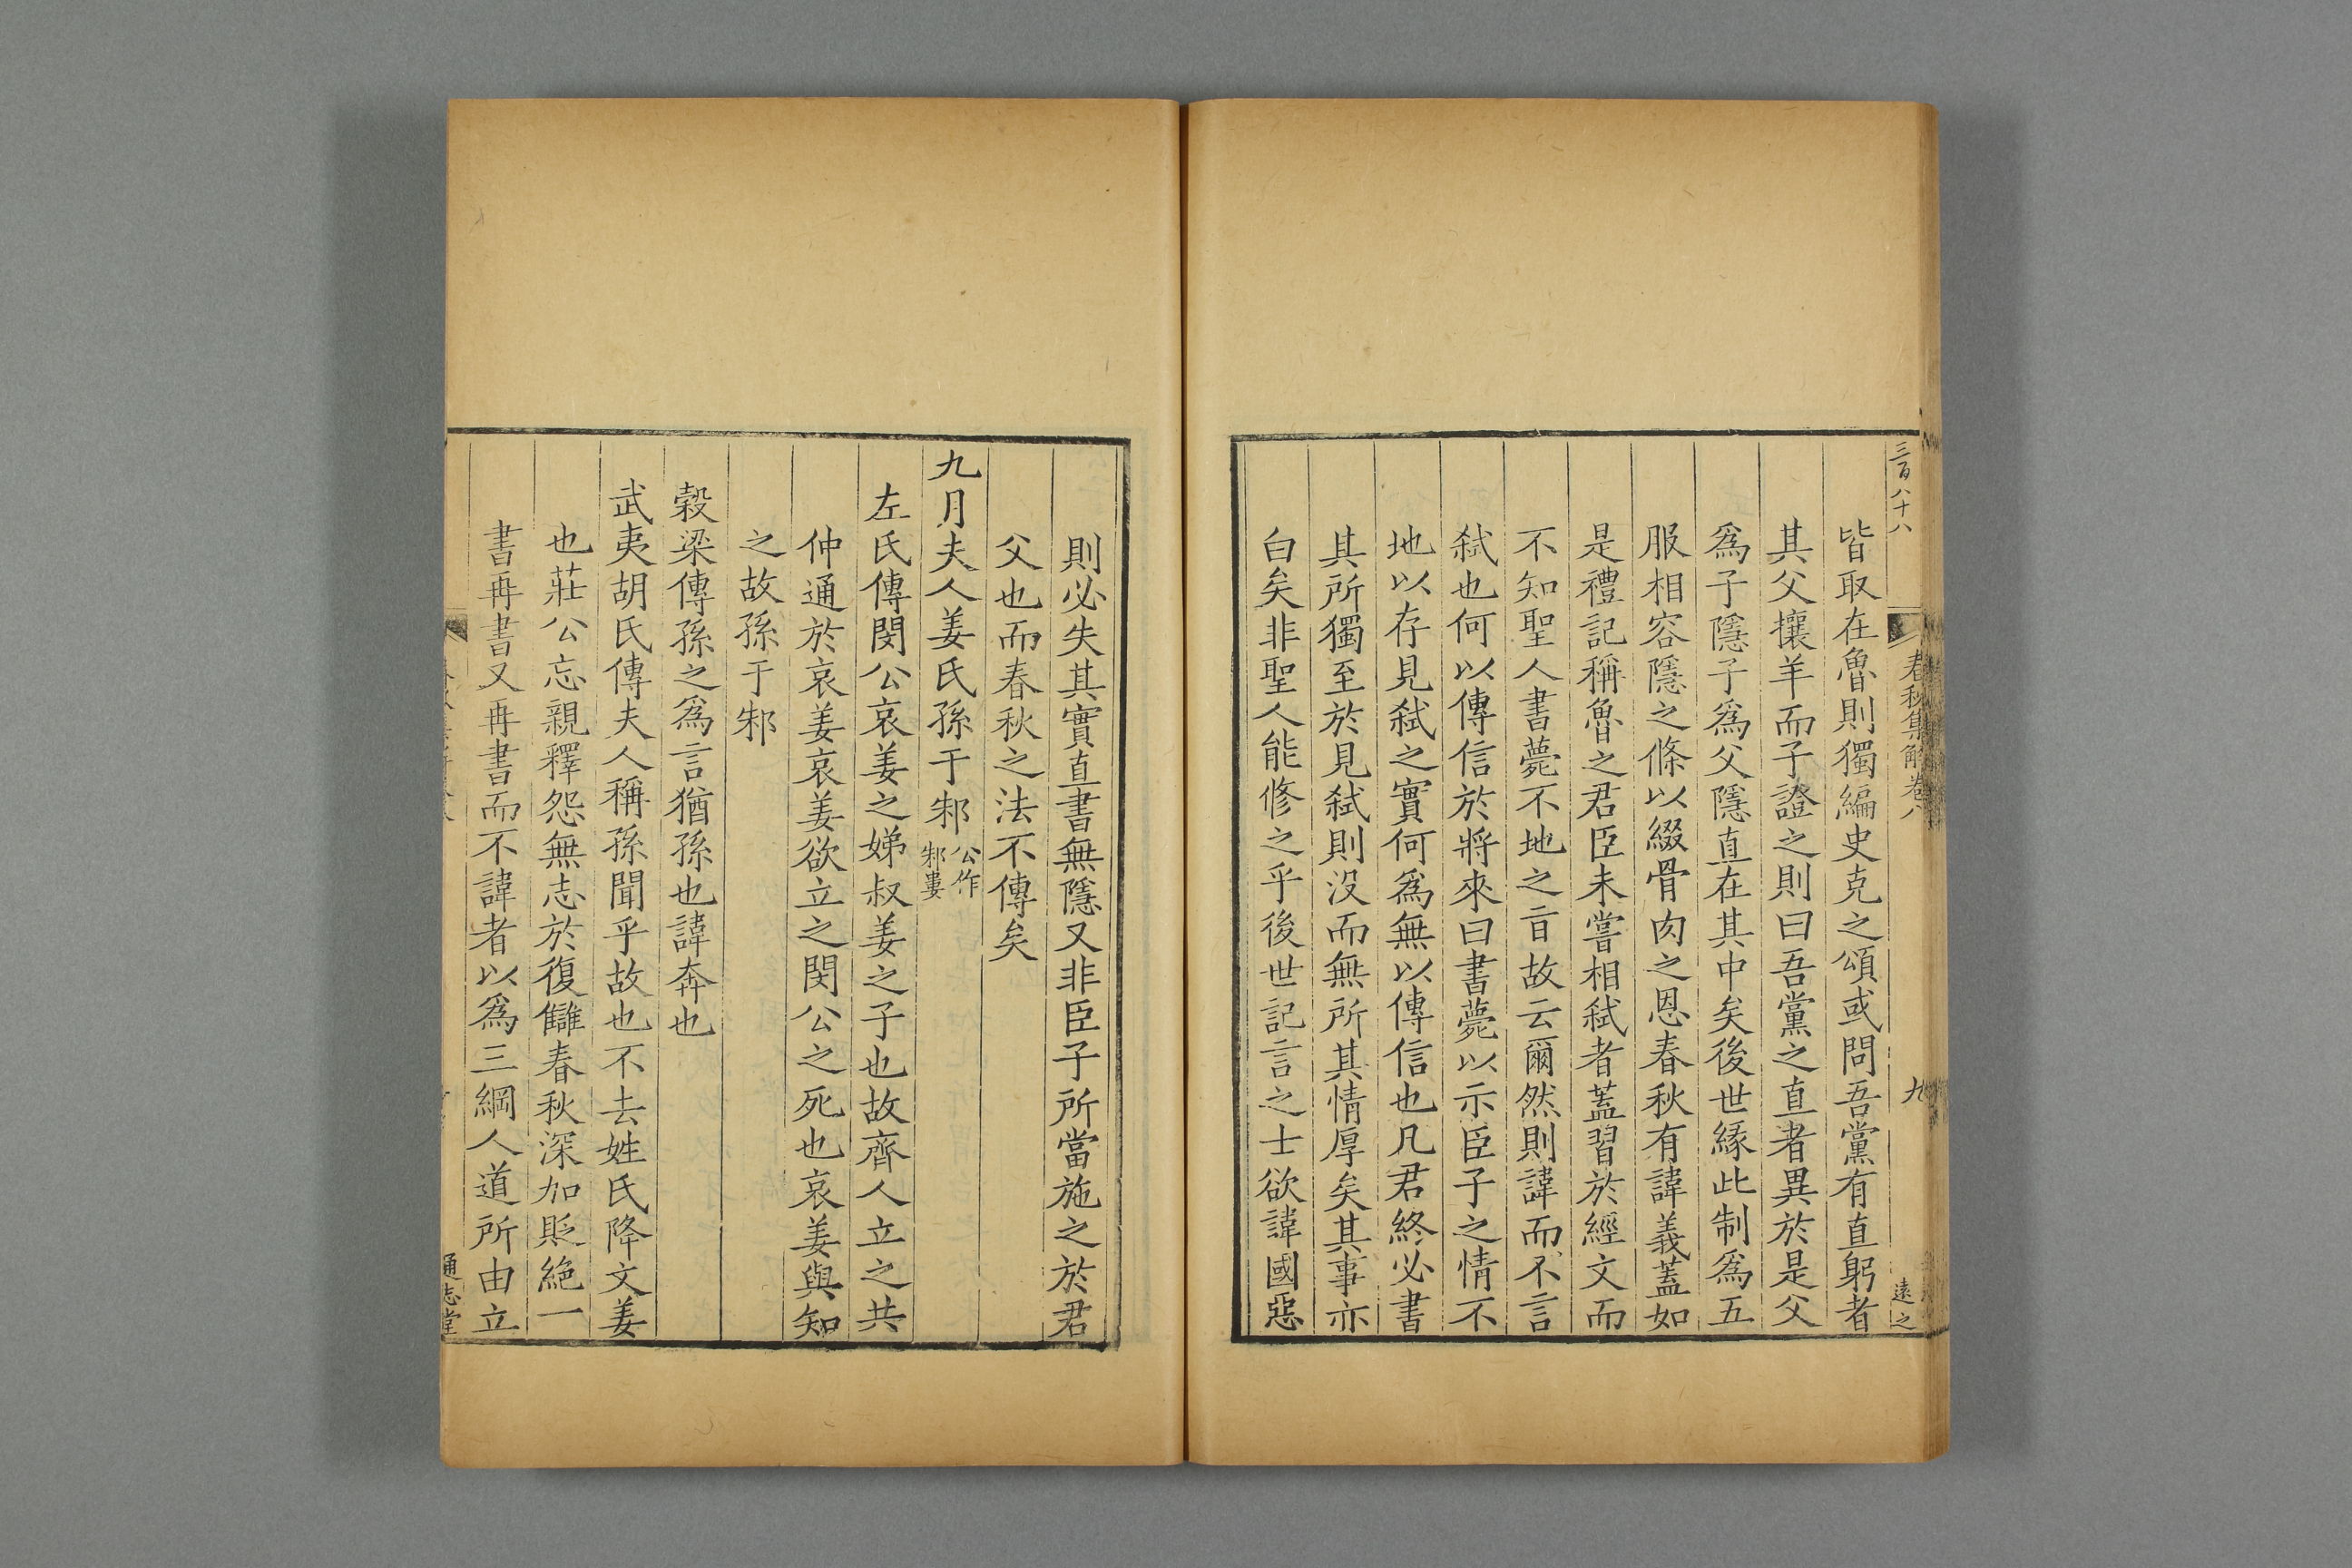 三百八十八
春秋集解卷八
九
遠之
皆取在魯則獨編史克之頌或問吾黨有直躬者
其父攘羊而子證之則曰吾黨之直者異於是父
爲子隱子爲父隱直在其中矣後世緣此制爲五
服相容隱之條以綴骨肉之恩春秋有諱義蓋如
是禮記稱魯之君臣未嘗相弑者蓋習於經文而
不知聖人書薨不地之旨故云爾然則諱而不言
弑也何以傳信於將來曰書薨以示臣子之情不
地以存見弑之實何爲無以傳信也凡君終必書
其所獨至於見弑則没而無所其情厚矣其事亦
白矣非聖人能修之乎後世記言之士欲諱國惡
則必失其實直書無隱又非臣子所當施之於君
父也而春秋之法不傳矣
九月夫人姜氏孫于邾公作邾婁
左氏傳閔公哀姜之娣叔姜之子也故齊人立之共
仲通於哀姜哀姜欲立之閔公之死也哀姜與知
之故孫于邾
穀梁傳孫之爲言猶孫也諱奔也
武夷胡氏傳夫人稱孫聞乎故也不去姓氏降文姜
也莊公忘親釋怨無志於復讎春秋深加貶絶一
書再書又再書而不諱者以爲三綱人道所由立
通志堂